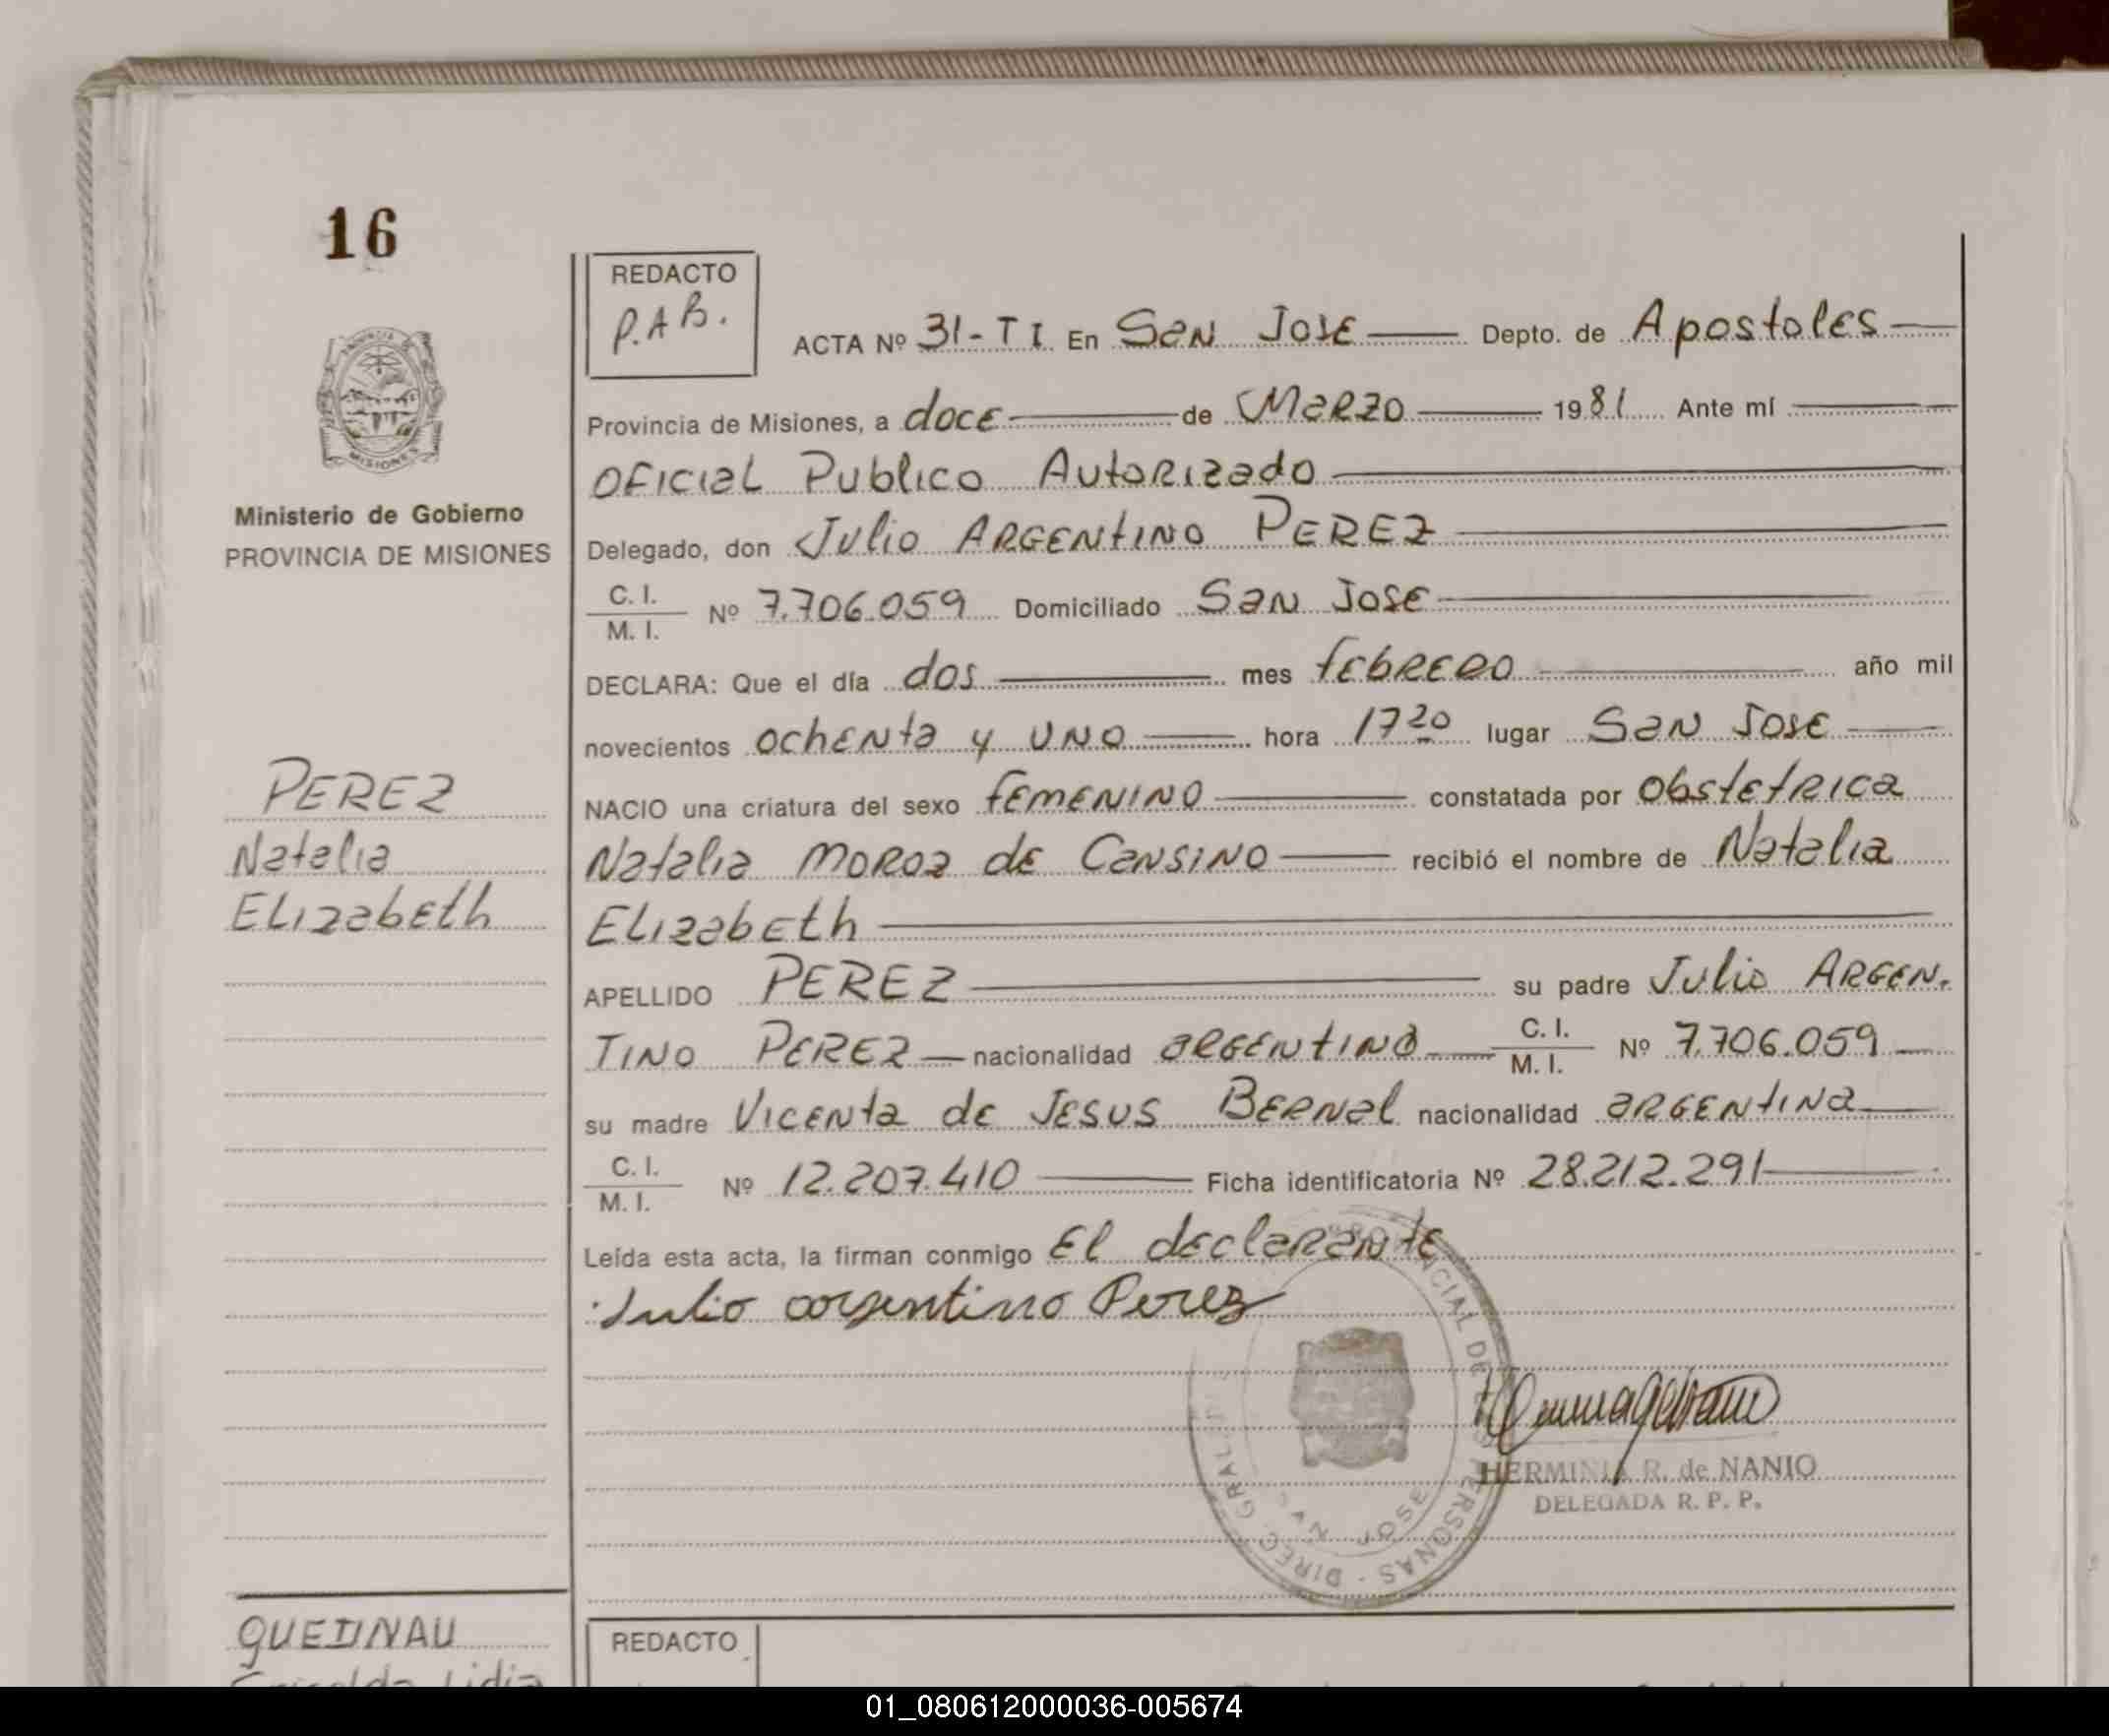 16
REDACTO
P.A.B.
ACTA Nº 31-TI En San Jose Depto. de Apostoles
Provincia de Misiones, a doce de Marzo 1981 Ante mí
Oficial Publico Autorizado
Ministerio de Gobierno
PROVINCIA DE MISIONES
Delegado, don Julio Argentino PEREZ
C. I.
M. I. Nº 7.706.059 Domiciliado San Jose
DECLARA: Que el día dos mes febrero año mil
novecientos ochenta y uno hora 17 20 lugar San Jose
NACIO una criatura del sexo femenino constatada por Obstetrica
Natalia Moroz de Cansino recibió el nombre de Natalia
Elizabeth
PEREZ
Natalia
Elizabeth
APELLIDO PEREZ su padre Julio Argen.
tino Perez nacionalidad argentino C. I. M. I. Nº 7.706.059
su madre Vicenta de Jesus Bernal nacionalidad argentina
C. I.
M. I. Nº 12.207.410 Ficha identificatoria Nº 28.212.291
Leída esta acta, la firman conmigo El declarante
Julio argentino Perez
CIAL DE PERSONAS - DIREC. GRAL.
SAN JOSE
HERMINIA R. de NANIO
DELEGADA R. P. P.
QUEDNAU
REDACTO
Lidia
01_080612000036-005674